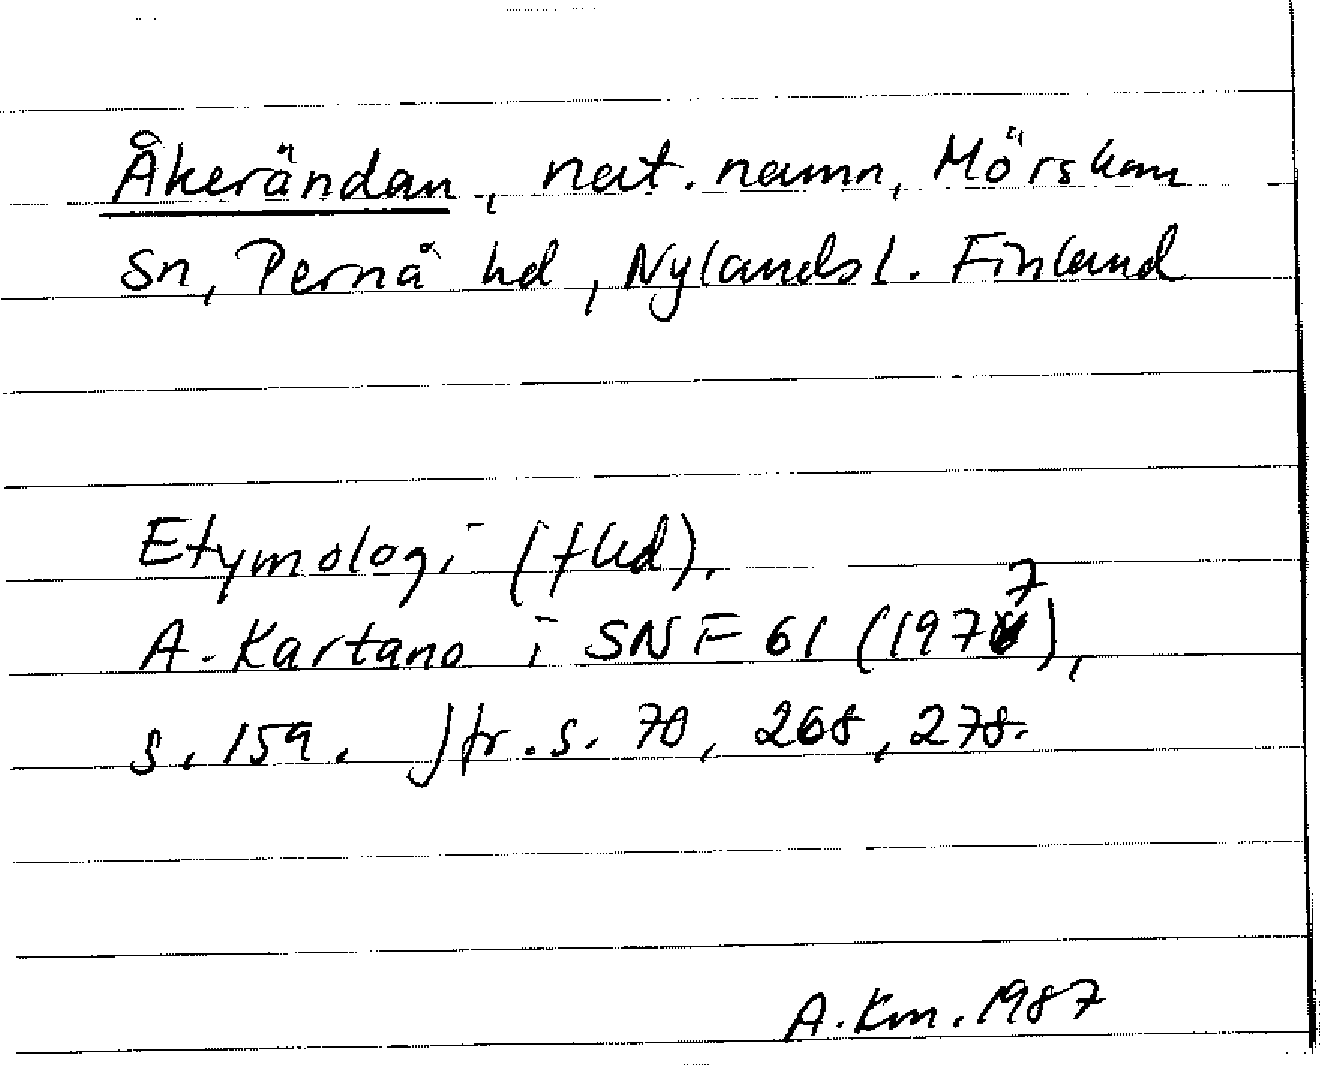 Åkerändan, nat. namn, Mörskom
sn, Pernå hd, Nylands l. Finland
Etymologi (fhd).
A. Kartano i SNF 61 (1977),
s. 159. Jfr. s. 78, 268, 278.
A. Km. 1987